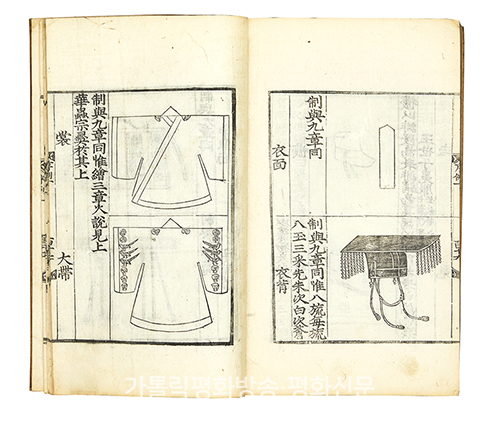 制與九章同
衣面
制與九章同惟八旒每旒
八玉三采先朱次白次蒼
衣背
制與九章同惟繪三章火說見上
華蟲宗彝於其上
裳
大帶
가톨릭평화방송·평화신문